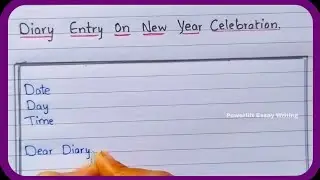 Diary Entry On New Year Celebration.
Date
Powerlift Essay Writing
Day
Time
Dear Diary,